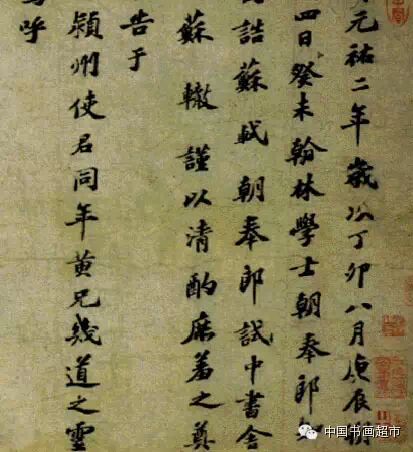 元祐二年歲次丁卯八月庚辰朔
四日癸未翰林學士朝奉郎知
誥蘇軾朝奉郎試中書舍
蘇轍謹以清酌庶羞之奠
告于
潁州使君同年黄兄幾道之靈
呼
中国书画超市